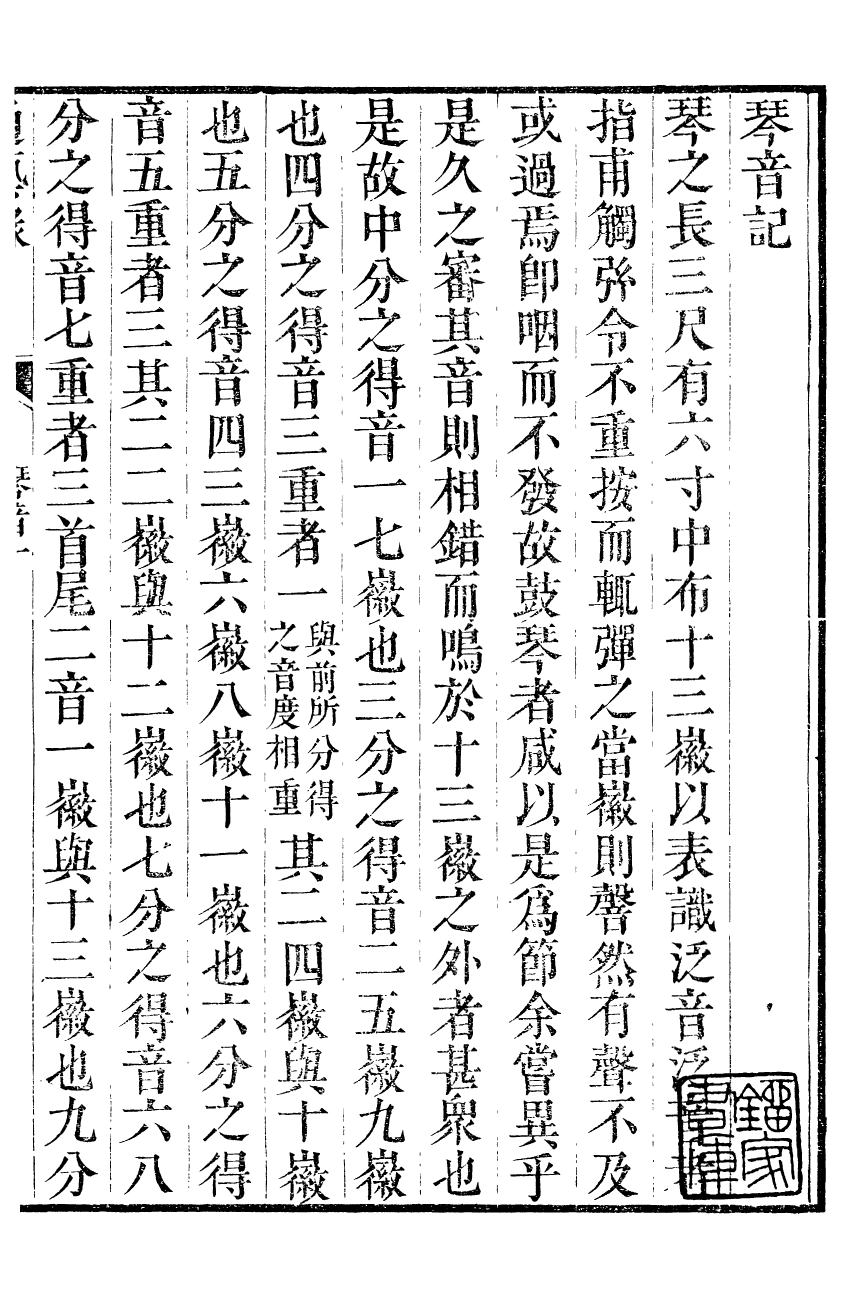 琴音記
琴之長三尺有六寸中布十三徽以表識泛音泛
指甫觸弦令不重按而輒彈之當徽則謦然有聲不及
或過焉卽咽而不發故鼓琴者咸以是爲節余嘗異乎
是久之審其音則相錯而鳴於十三徽之外者甚衆也
是故中分之得音一七徽也三分之得音二五徽九徽
也四分之得音三重者一與前所分得之音度相重其二四徽與十徽
也五分之得音四三徽六徽八徽十一徽也六分之得
音五重者三其二二徽與十二徽也七分之得音六八
分之得音七重者三首尾二音一徽與十三徽也九分